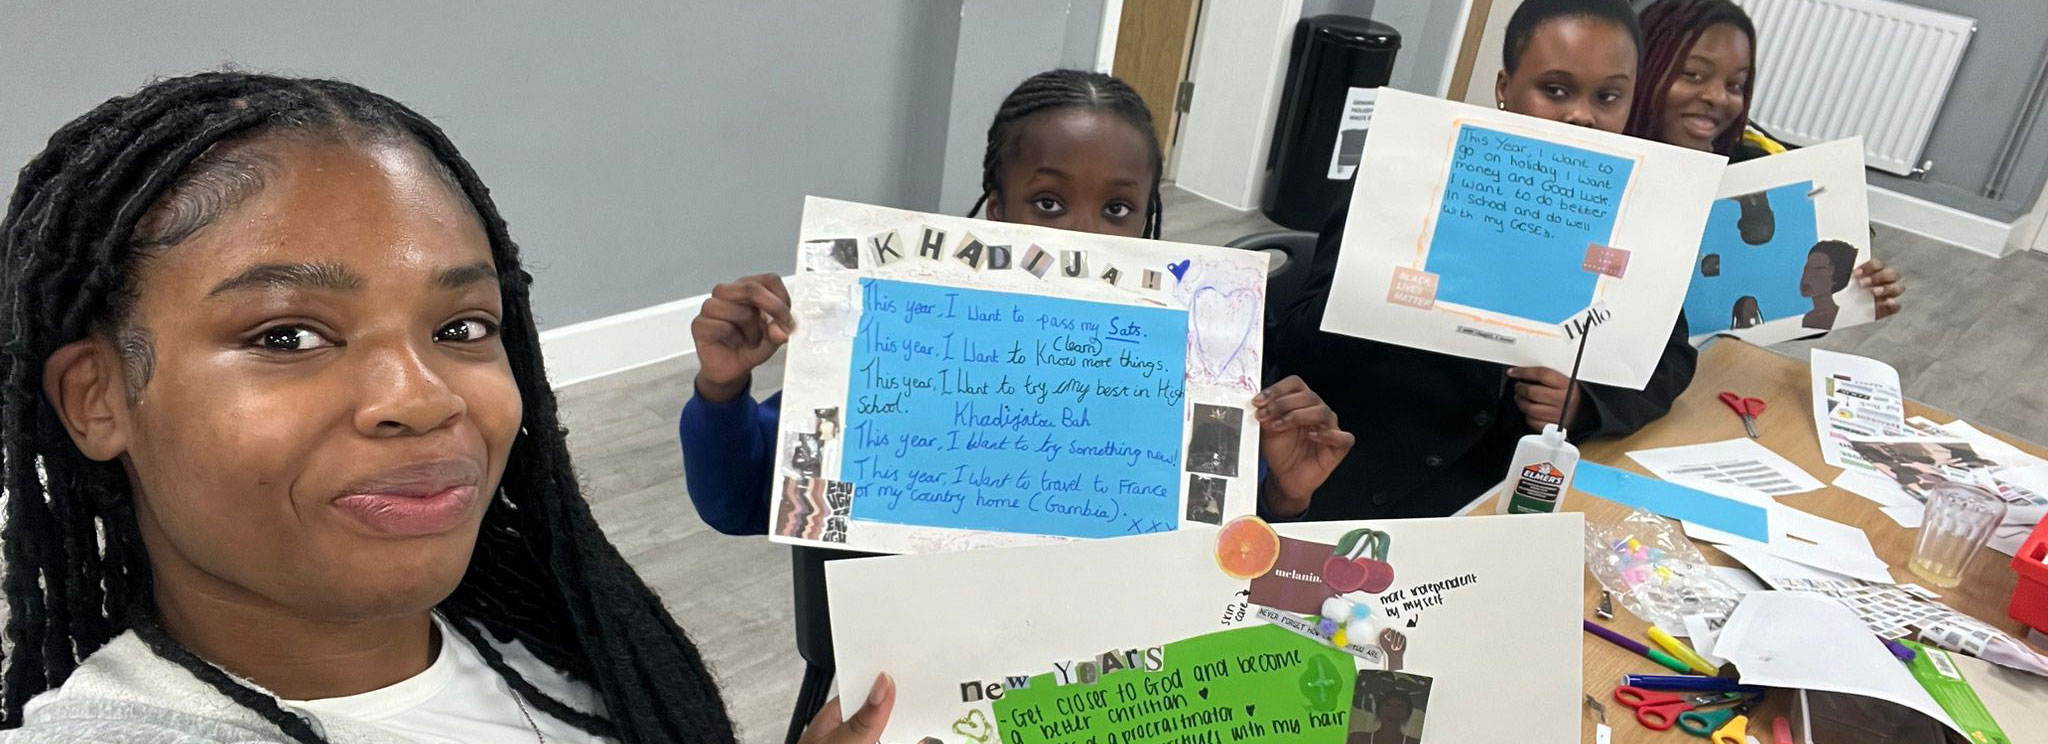 KHADIJA!
This year, I Want to pass my Sats.
(learn)
This year, I Want to Know more things.
This year, I Want to try my best in High
School.
Khadijatou Bah
This year, I Want to try Something new!
This year, I Want to travel to France
or my country home (Gambia).
XXX
ENOUGH
This Year, I want to
go on holiday. I want
money and Good Luck.
I want to do better
in School and do well
with my GCSEs.
BLACK
LIVES
MATTER
Hello
ELMER'S
melanin.
skin
care
more independent
by myself
NEVER FORGET HOW
YOU ARE
new YeArS
- Get closer to God and become
a better christian
of a procrastinator
with my hair